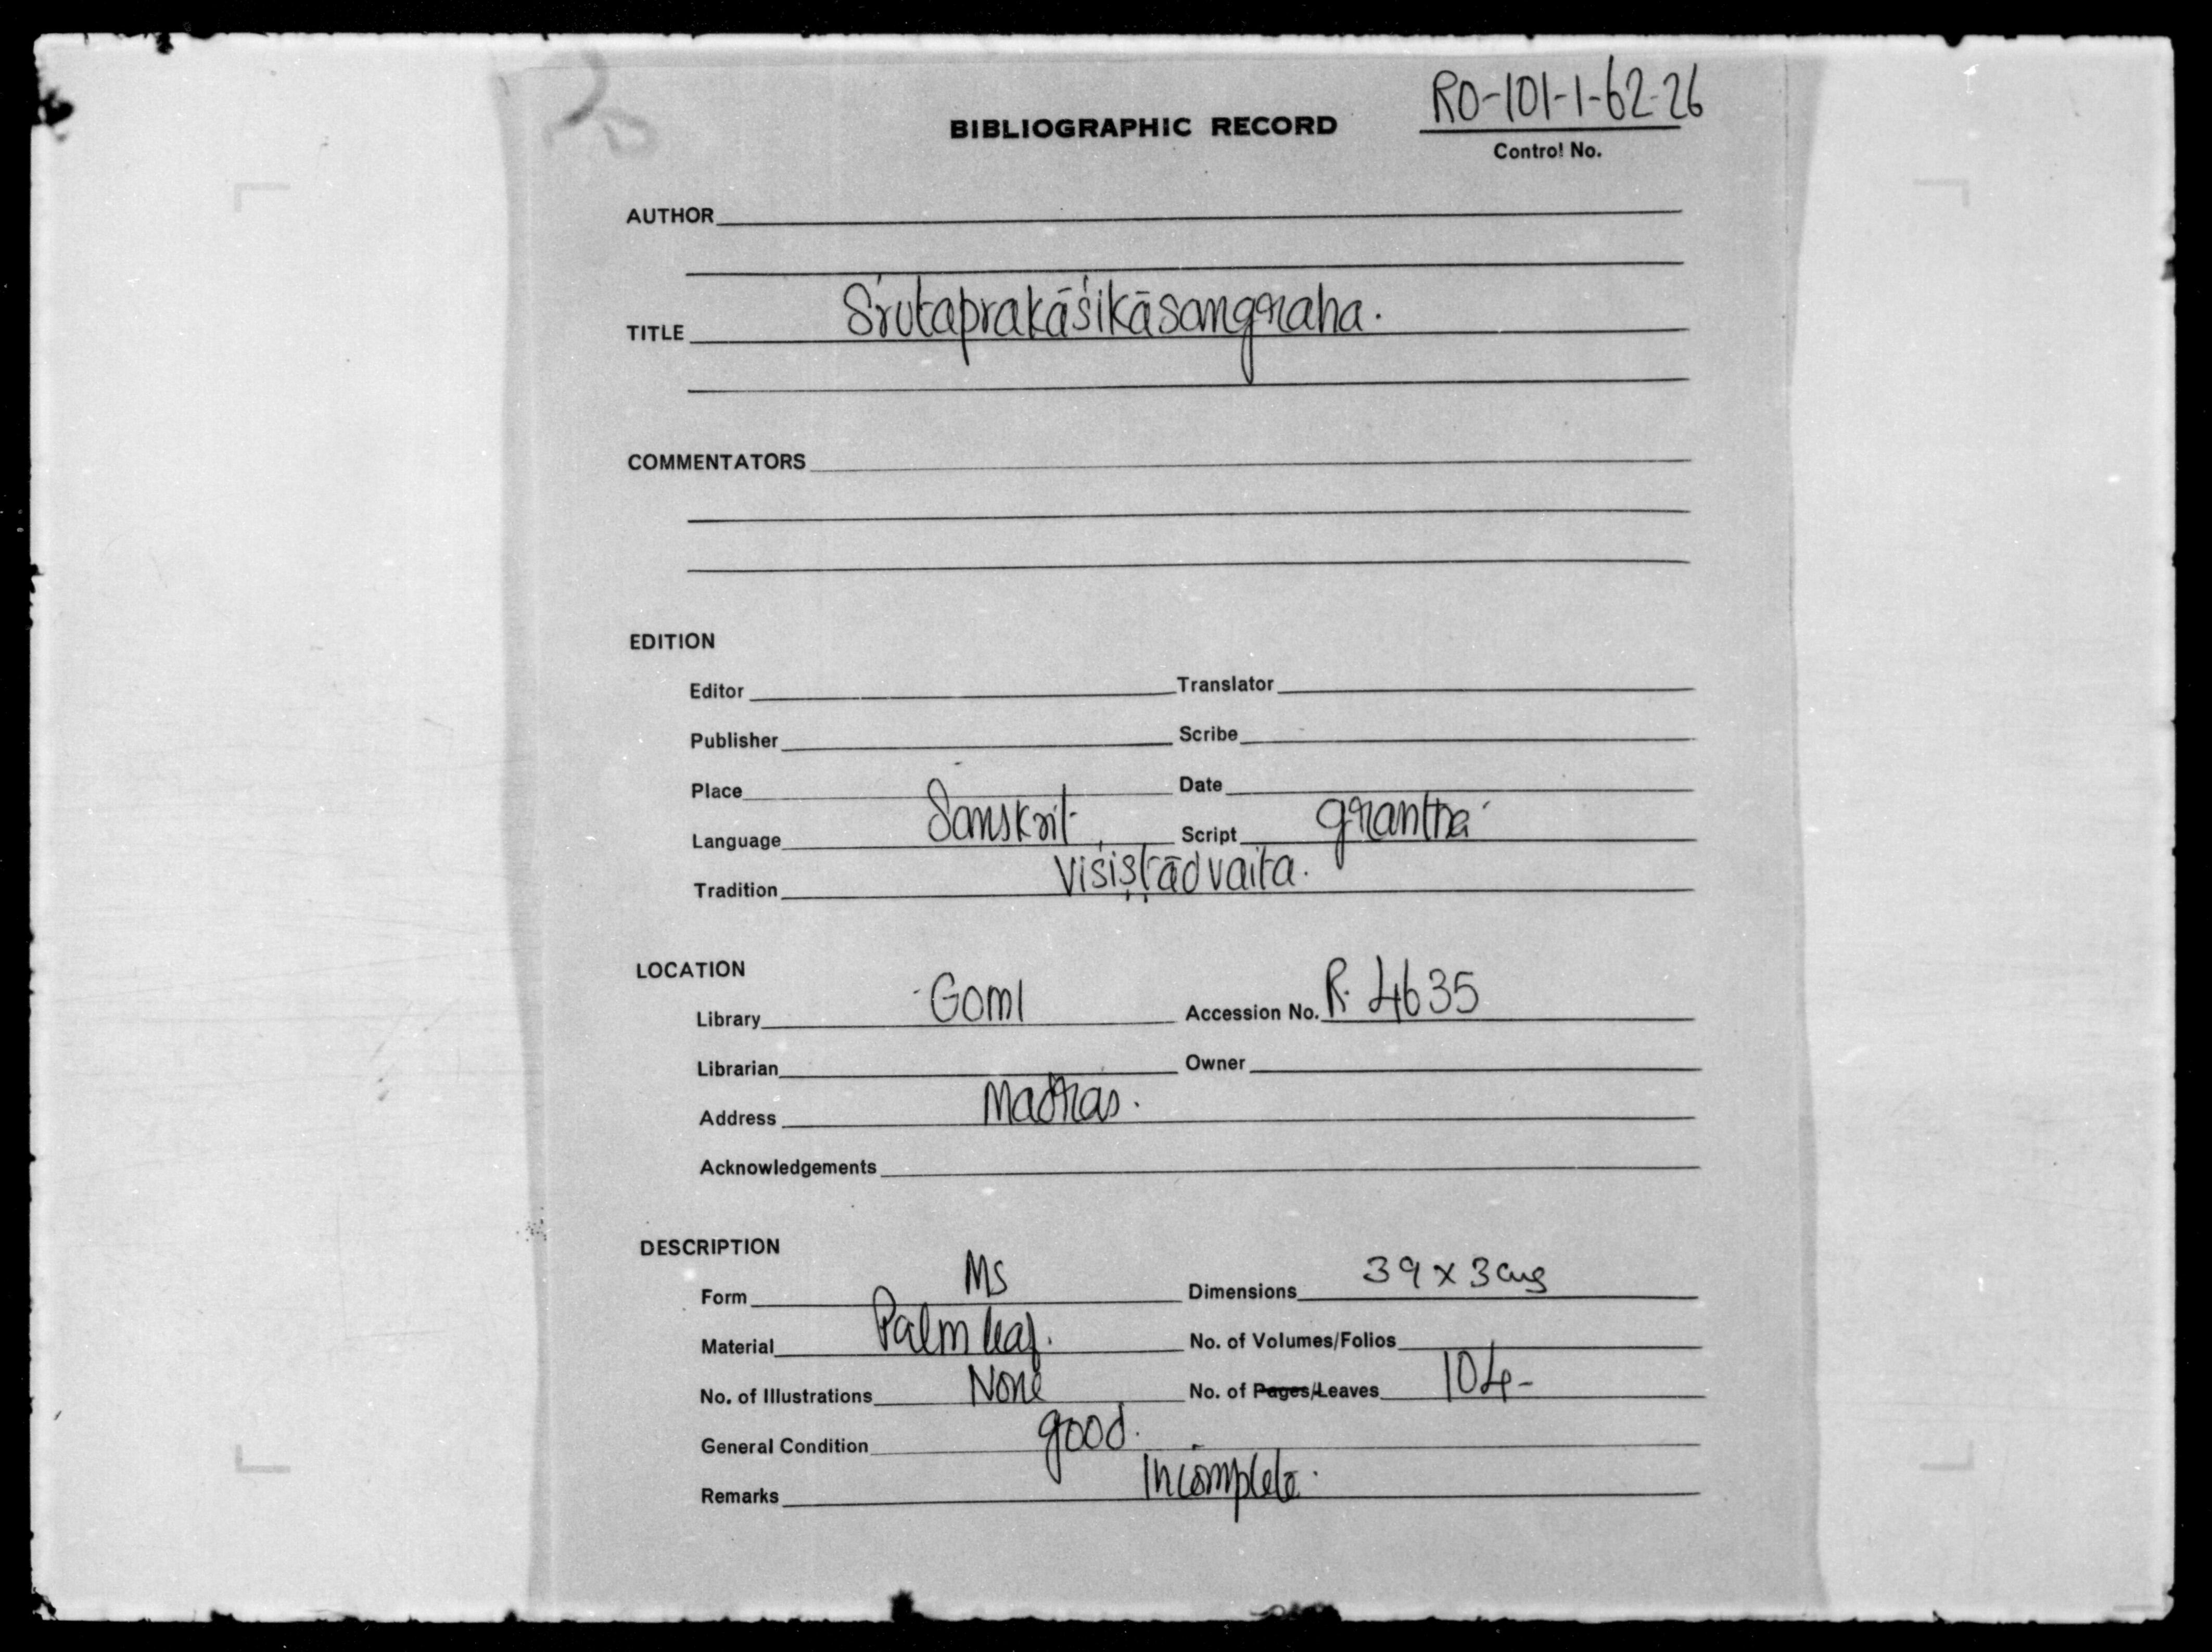 RO-101-1-62-26
BIBLIOGRAPHIC RECORD
Control No.
AUTHOR
TITLE Śrutaprakāśikāsangraha.
COMMENTATORS
EDITION
Editor Translator
Publisher Scribe
Place Date
Language Sanskrit Script grantha
Tradition Viśiṣṭādvaita.
LOCATION
Library Goml Accession No. R. 4635
Librarian Owner
Address Madras.
Acknowledgements
DESCRIPTION
Form Ms Dimensions 39 x 3 cms
Material Palm leaf. No. of Volumes/Folios
No. of Illustrations None No. of Pages/Leaves 104-
General Condition good.
Remarks Incomplete.